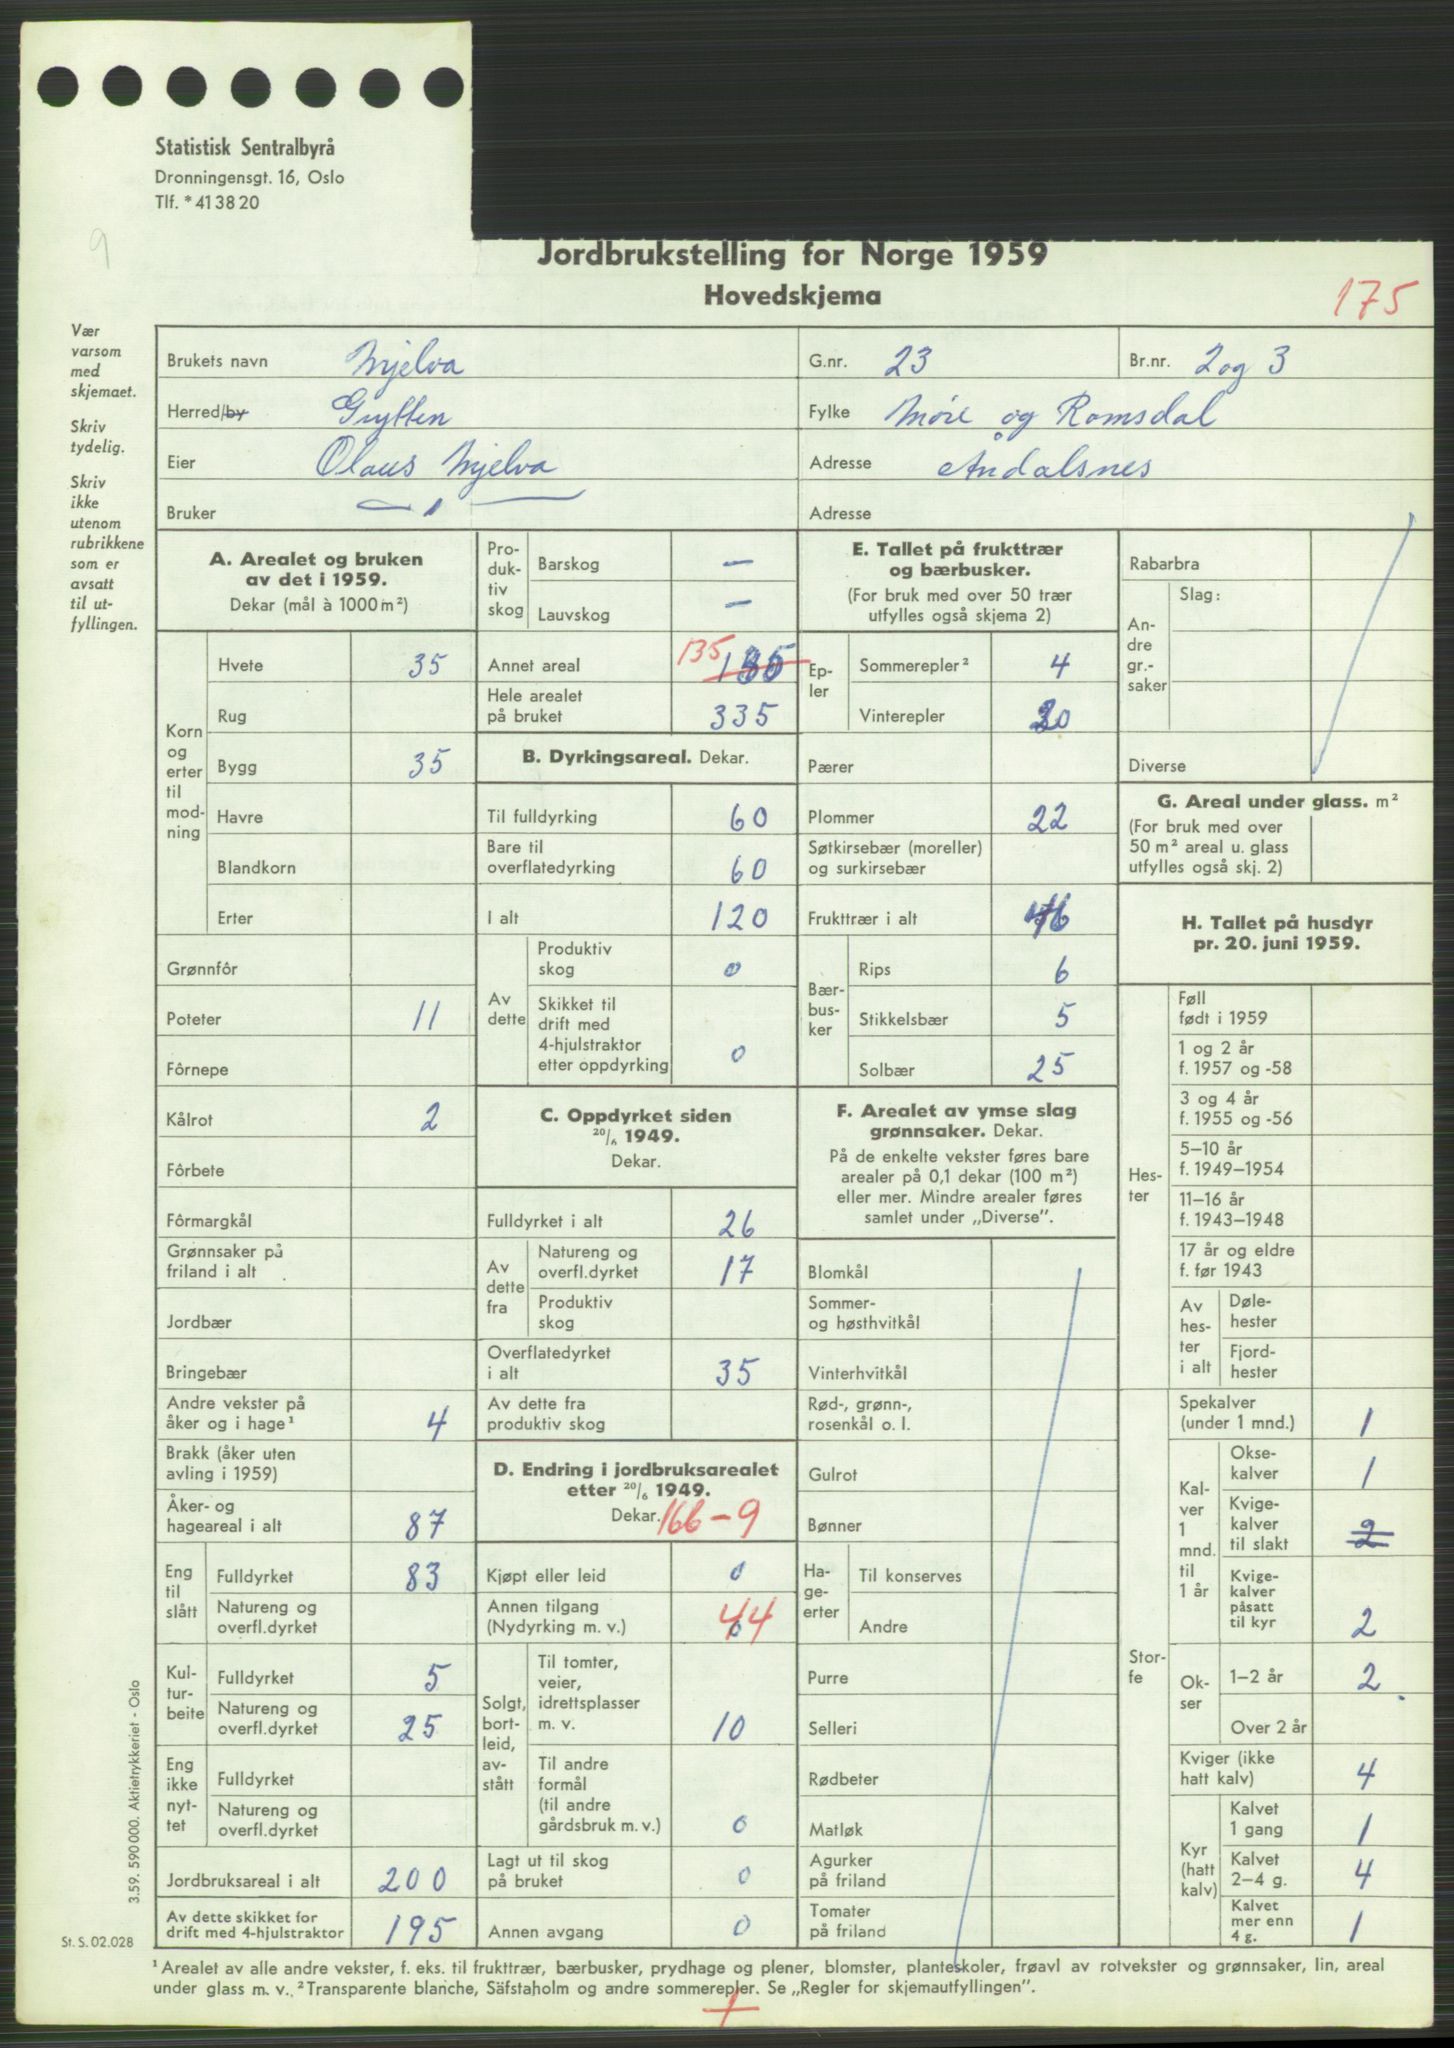 Statistisk Sentralbyrå
Dronningensgt. 16, Oslo
Tlf. * 41 38 20
9
Jordbrukstelling for Norge 1959
Hovedskjema
175
Vær
varsom
med
skjemaet.
Skriv
tydelig.
Skriv
ikke
utenom
rubrikkene
som er
avsatt
til ut-
fyllingen.
Brukets navn Mjelva G.nr. 23 Br.nr. 2 og 3
Herred/by Grytten Fylke Møre og Romsdal
Eier Olaus Mjelva Adresse Åndalsnes
Bruker — " — Adresse
A. Arealet og bruken
av det i 1959.
Dekar (mål à 1000 m²)
Korn
og
erter
til
mod-
ning
Hvete 35
Rug
Bygg 35
Havre
Blandkorn
Erter
Grønnfôr
Poteter 11
Fôrnepe
Kålrot 2
Fôrbete
Fôrmargkål
Grønnsaker på
friland i alt
Jordbær
Bringebær
Andre vekster på
åker og i hage¹ 4
Brakk (åker uten
avling i 1959)
Åker- og
hageareal i alt 87
Eng
til
slått
Fulldyrket 83
Natureng og
overfl.dyrket
Kul-
tur-
beite
Fulldyrket 5
Natureng og
overfl.dyrket 25
Eng
ikke
nyt-
tet
Fulldyrket
Natureng og
overfl.dyrket
Jordbruksareal i alt 200
Av dette skikket for
drift med 4-hjulstraktor 195
Pro-
duk-
tiv
skog
Barskog —
Lauvskog —
Annet areal 135
Hele arealet
på bruket 335
B. Dyrkingsareal. Dekar.
Til fulldyrking 60
Bare til
overflatedyrking 60
I alt 120
Av
dette
Produktiv
skog 0
Skikket til
drift med
4-hjulstraktor
etter oppdyrking 0
C. Oppdyrket siden
20/6 1949.
Dekar.
Fulldyrket i alt 26
Av
dette
fra
Natureng og
overfl.dyrket 17
Produktiv
skog
Overflatedyrket
i alt 35
Av dette fra
produktiv skog
D. Endring i jordbruksarealet
etter 20/6 1949.
Dekar. 166-9
Kjøpt eller leid 0
Annen tilgang
(Nydyrking m. v.) 44
Solgt,
bort-
leid,
av-
stått
Til tomter,
veier,
idrettsplasser
m. v. 10
Til andre
formål
(til andre
gårdsbruk m. v.) 0
Lagt ut til skog
på bruket 0
Annen avgang 0
E. Tallet på frukttrær
og bærbusker.
(For bruk med over 50 trær
utfylles også skjema 2)
Ep-
ler
Sommerepler² 4
Vinterepler 20
Pærer
Plommer 22
Søtkirsebær (moreller)
og surkirsebær
Frukttrær i alt 46
Bær-
bus-
ker
Rips 6
Stikkelsbær 5
Solbær 25
F. Arealet av ymse slag
grønnsaker. Dekar.
På de enkelte vekster føres bare
arealer på 0,1 dekar (100 m²)
eller mer. Mindre arealer føres
samlet under „Diverse”.
Blomkål
Sommer-
og høsthvitkål
Vinterhvitkål
Rød-, grønn-,
rosenkål o. l.
Gulrot
Bønner
Ha-
ge-
erter
Til konserves
Andre
Purre
Selleri
Rødbeter
Matløk
Agurker
på friland
Tomater
på friland
Rabarbra
An-
dre
gr.-
saker
Slag:
Diverse
G. Areal under glass. m²
(For bruk med over
50 m² areal u. glass
utfylles også skj. 2)
H. Tallet på husdyr
pr. 20. juni 1959.
Hes-
ter
Føll
født i 1959
1 og 2 år
f. 1957 og -58
3 og 4 år
f. 1955 og -56
5–10 år
f. 1949–1954
11–16 år
f. 1943–1948
17 år og eldre
f. før 1943
Av
hes-
ter
i alt
Døle-
hester
Fjord-
hester
Stor-
fe
Spekalver
(under 1 mnd.) 1
Kal-
ver
1
mnd.
til
1 år
Okse-
kalver 1
Kvige-
kalver
til slakt 2
Kvige-
kalver
påsatt
til kyr 2
Ok-
ser
1–2 år 2
Over 2 år
Kviger (ikke
hatt kalv) 4
Kyr
(hatt
kalv)
Kalvet
1 gang 1
Kalvet
2–4 g. 4
Kalvet
mer enn
4 g. 1
3.59. 590 000. Aktietrykkeriet - Oslo
St. S. 02.028
¹ Arealet av alle andre vekster, f. eks. til frukttrær, bærbusker, prydhage og plener, blomster, planteskoler, frøavl av rotvekster og grønnsaker, lin, areal
under glass m. v. ² Transparente blanche, Säfstaholm og andre sommerepler. Se „Regler for skjemautfyllingen”.